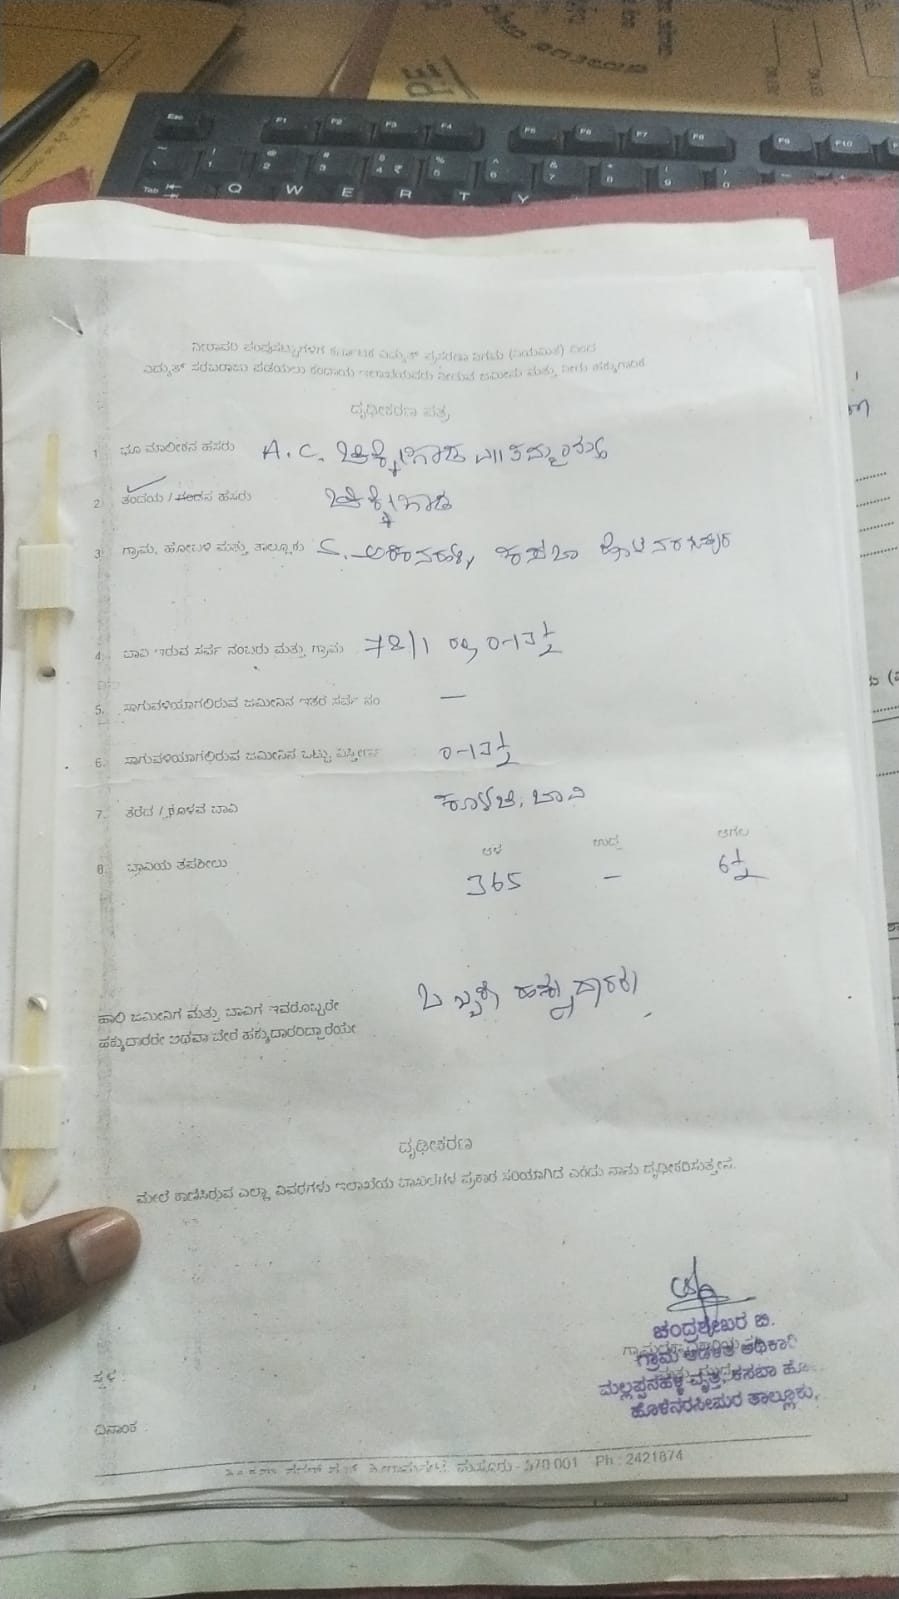 Esc F1 F2 F3 F4 F5 F6 F7 F8 F9 F10
Tab Q W E R T Y
ನೀರಾವರಿ ಪಂಪುಸೆಟ್ಟುಗಳಿಗೆ ಕರ್ನಾಟಕ ವಿದ್ಯುತ್ ಪ್ರಸರಣಾ ನಿಗಮ (ನಿಯಮಿತ) ದಿಂದ
ವಿದ್ಯುತ್ ಸರಬರಾಜು ಪಡೆಯಲು ಕಂದಾಯ ಇಲಾಖೆಯವರು ನೀಡುವ ಜಮೀನು ಮತ್ತು ನೀರು ಹಕ್ಕುಗಾರಿಕೆ
ದೃಢೀಕರಣ ಪತ್ರ
1. ಭೂ ಮಾಲೀಕನ ಹೆಸರು A.C.
2. ತಂದೆಯ / ಗಂಡನ ಹೆಸರು
3. ಗ್ರಾಮ, ಹೋಬಳಿ ಮತ್ತು ತಾಲ್ಲೂಕು ಕಸಬಾ
4. ಬಾವಿ ಇರುವ ಸರ್ವೆ ನಂಬರು ಮತ್ತು ಗ್ರಾಮ 78/1 0-13½
5. ಸಾಗುವಳಿಯಾಗಲಿರುವ ಜಮೀನಿನ ಇತರೆ ಸರ್ವೆ ನಂ —
6. ಸಾಗುವಳಿಯಾಗಲಿರುವ ಜಮೀನಿನ ಒಟ್ಟು ವಿಸ್ತೀರ್ಣ 0-13½
7. ತೆರೆದ / ಕೊಳವೆ ಬಾವಿ ಕೊಳವೆ ಬಾವಿ
ಆಳ ಉದ್ದ ಅಗಲ
8. ಬಾವಿಯ ತಪಶೀಲು 365 – 6½
ಹಾಲಿ ಜಮೀನಿಗೆ ಮತ್ತು ಬಾವಿಗೆ ಇವರೊಬ್ಬರೇ ಒಬ್ಬರೇ ಹಕ್ಕುದಾರರು
ಹಕ್ಕುದಾರರೇ ಅಥವಾ ಬೇರೆ ಹಕ್ಕುದಾರರಿದ್ದಾರೆಯೇ
ದೃಢೀಕರಣ
ಮೇಲೆ ಕಾಣಿಸಿರುವ ಎಲ್ಲಾ ವಿವರಗಳು ಇಲಾಖೆಯ ದಾಖಲೆಗಳ ಪ್ರಕಾರ ಸರಿಯಾಗಿದೆ ಎಂದು ನಾನು ದೃಢೀಕರಿಸುತ್ತೇನೆ.
ಚಂದ್ರಶೇಖರ ಬಿ.
ಗ್ರಾಮ ಆಡಳಿತ ಅಧಿಕಾರಿ
ಸ್ಥಳ :
ಮಲ್ಲಪ್ಪನಹಳ್ಳಿ ವೃತ್ತ, ಕಸಬಾ ಹೋ
ಹೊಳೆನರಸೀಪುರ ತಾಲ್ಲೂಕು.
ದಿನಾಂಕ :
ಮೈಸೂರು - 570 001 Ph : 2421874